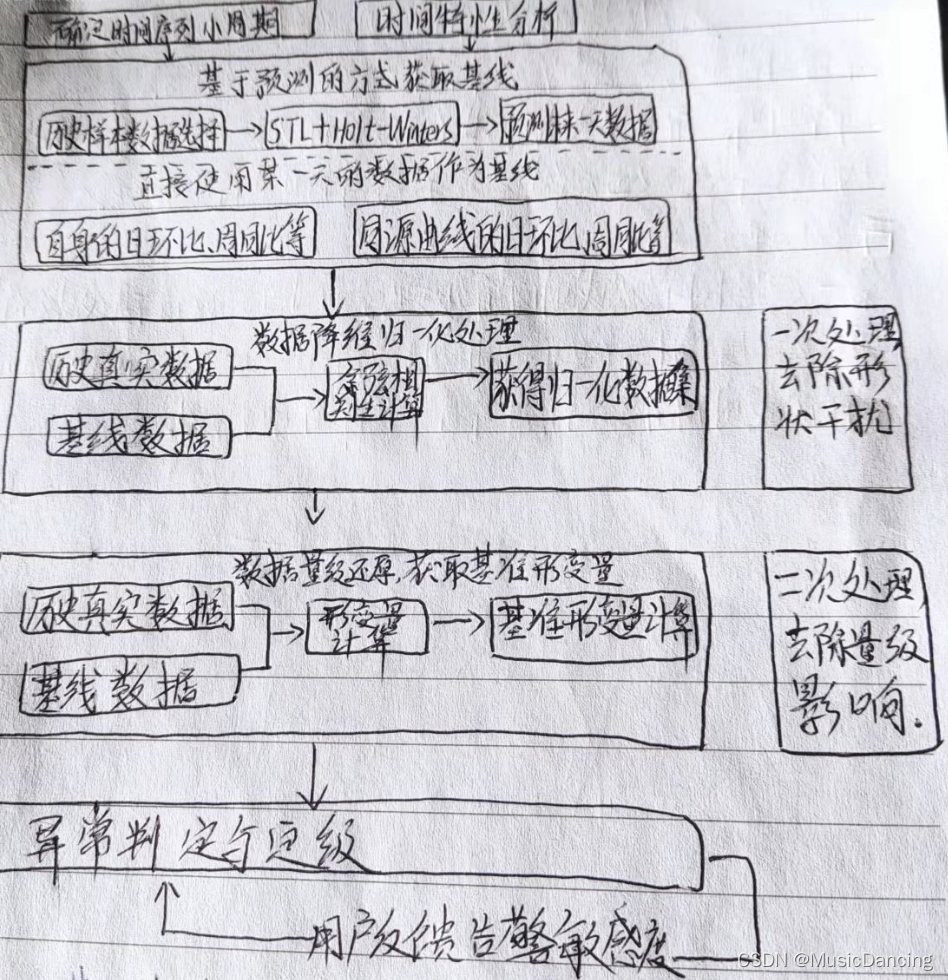 确定时间序列小周期 时间特性分析
基于预测的方式获取基线
历史样本数据选择 STL+Holt-Winters 预测未来一天数据
直接使用某一天的数据作为基线
自身的日环比、周同比等 同源曲线的日环比、周同比等
数据降维归一化处理
历史真实数据
基线数据
余弦相
似性计算
获得归一化数据集
一次处理,
去除形
状干扰
数据量级还原,获取基准形变量
历史真实数据
基线数据
形变量
计算
基准形变量计算
二次处理,
去除量级
影响.
异常判定与定级
用户反馈告警敏感度
CSDN @MusicDancing